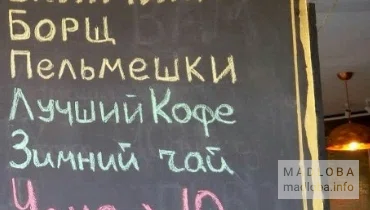 Борщ
Пельмешки
Лучший Кофе
Зимний чай
MADLOBA
madloba.info